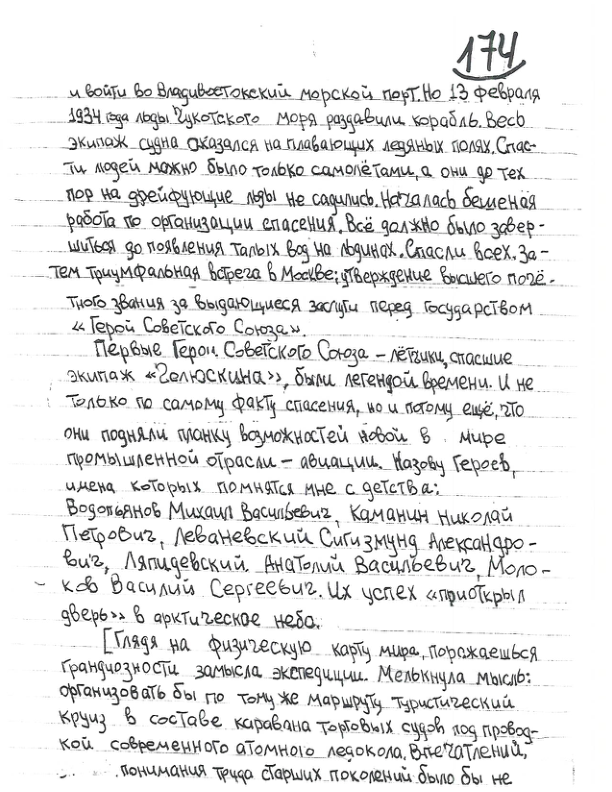 174
и войти во Владивостокский морской порт. Но 13 февраля
1934 года льды Чукотского моря раздавили корабль. Весь
экипаж судна оказался на плавающих ледяных полях. Спас-
ти людей можно было только самолётами, а они до тех
пор на дрейфующие льды не садились. Началась бешеная
работа по организации спасения. Всё должно было завер-
шиться до появления талых вод на льдинах. Спасли всех. За-
тем триумфальная встреча в Москве; утверждение высшего почё-
тного звания за выдающиеся заслуги перед государством
«Герой Советского Союза».
Первые Герои Советского Союза – лётчики, спасшие
экипаж «Челюскина», были легендой времени. И не
только по самому факту спасения, но и потому ещё, что
они подняли планку возможностей новой в мире
промышленной отрасли – авиации. Назову Героев,
имена которых помнятся мне с детства:
Водопьянов Михаил Васильевич, Каманин Николай
Петрович, Леваневский Сигизмунд Александро-
вич, Ляпидевский. Анатолий Васильевич, Моло-
ков Василий Сергеевич. Их успех «приоткрыл
дверь» в арктическое небо.
[Глядя на физическую карту мира, поражаешься
грандиозности замысла экспедиции. Мелькнула мысль:
организовать бы по тому же маршруту туристический
круиз в составе каравана торговых судов под провод-
кой современного атомного ледокола. Впечатлений,
понимания труда старших поколений было бы не